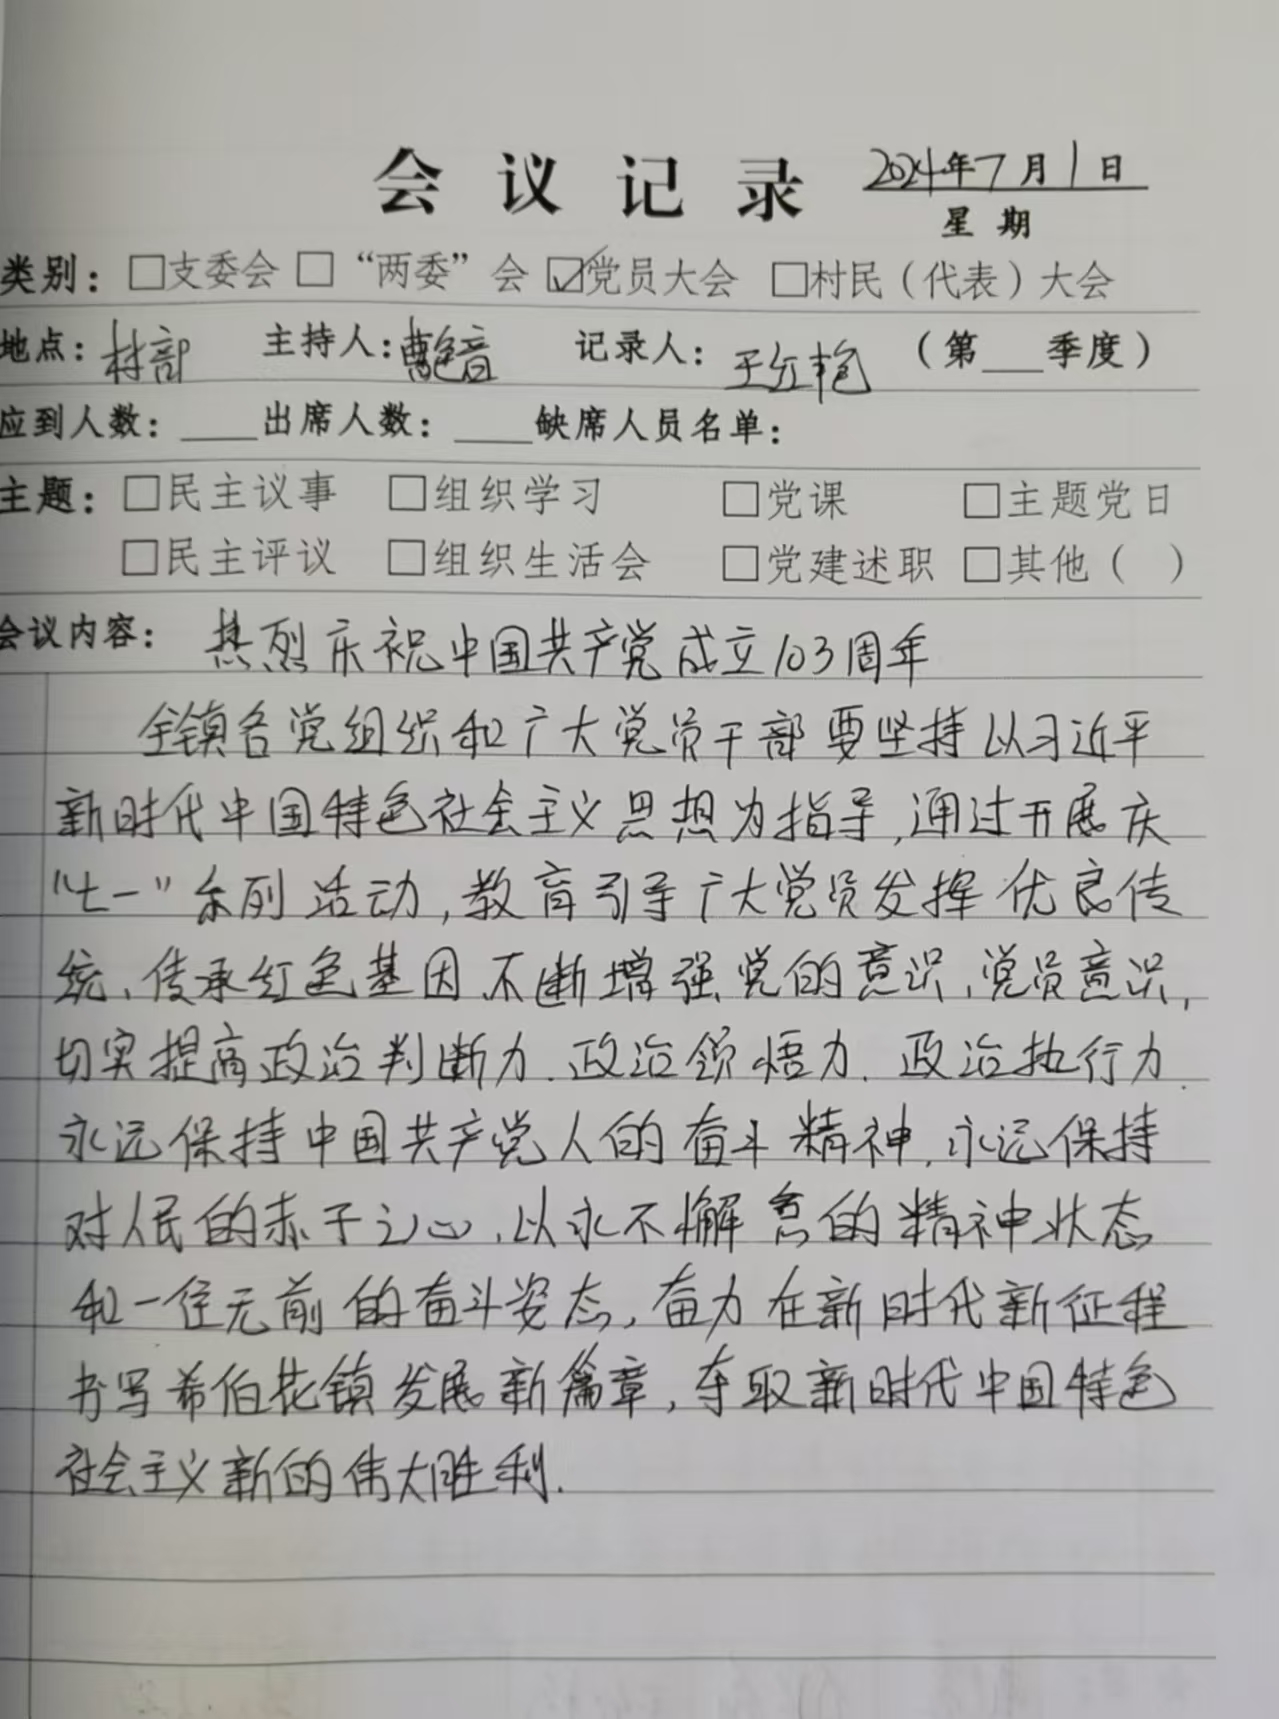 会议记录 2024年7月1日
星期
类别：□支委会 □“两委”会 ☑党员大会 □村民（代表）大会
地点：村部 主持人： 记录人：于红艳 （第___季度）
应到人数：____出席人数：____缺席人员名单：
主题：□民主议事 □组织学习 □党课 □主题党日
□民主评议 □组织生活会 □党建述职 □其他（ ）
会议内容：热烈庆祝中国共产党成立103周年
全镇各党组织和广大党员干部要坚持以习近平
新时代中国特色社会主义思想为指导,通过开展庆
“七一”系列活动,教育引导广大党员发挥优良传
统、传承红色基因,不断增强党的意识、党员意识,
切实提高政治判断力、政治领悟力、政治执行力.
永远保持中国共产党人的奋斗精神,永远保持
对人民的赤子之心,以永不懈怠的精神状态
和一往无前的奋斗姿态,奋力在新时代新征程
书写希伯花镇发展新篇章,夺取新时代中国特色
社会主义新的伟大胜利.